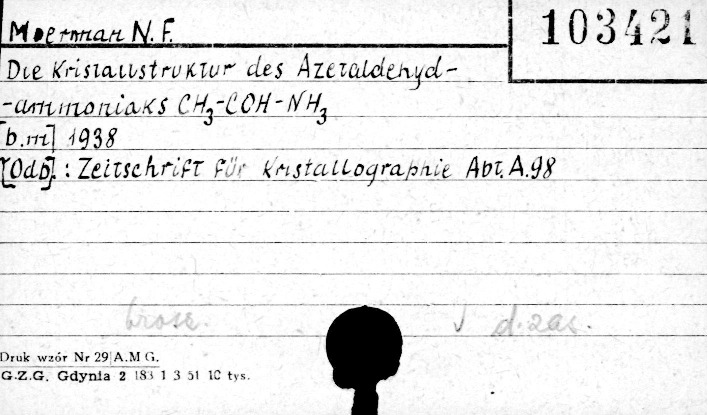 103421
Moerman N. F.
Die Kristallstruktur des Azetaldehyd-
-ammoniaks CH₃-COH-NH₃
[b.m] 1938
[Odb]. : Zeitschrift für Kristallographie Abt. A. 98
brosz.
d. zas.
Druk wzór Nr 29 A.M G.
G.Z.G. Gdynia 2 183 1 3 51 10 tys.